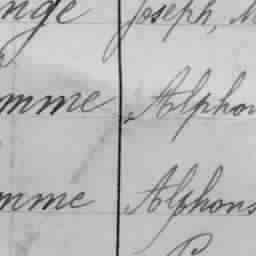 nge Joseph, M
mme Alphon
mme Alphons